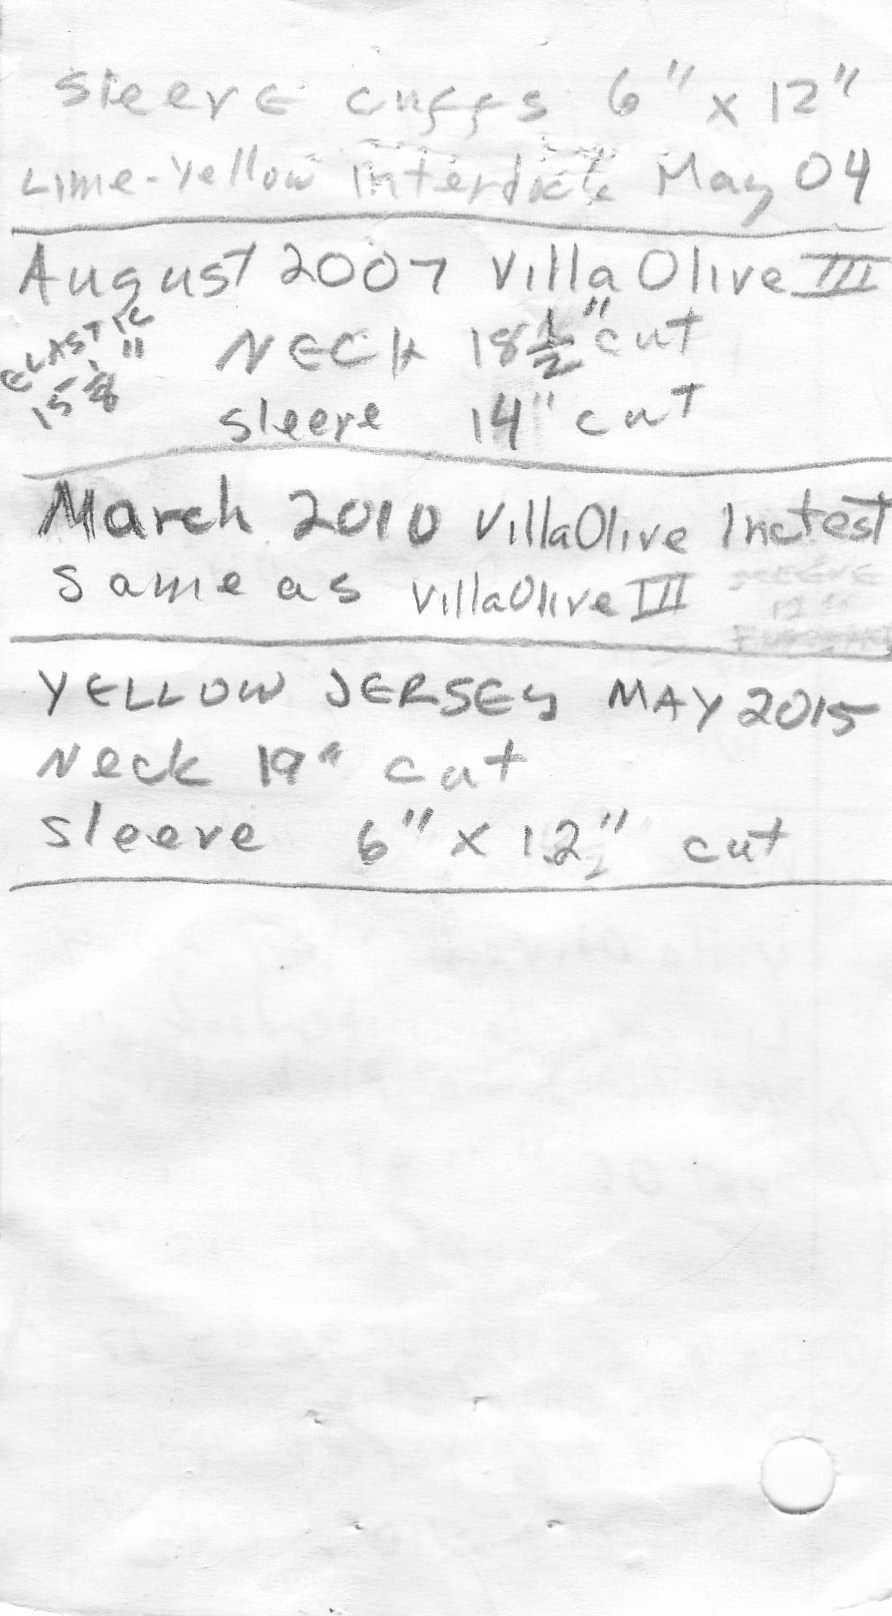 sleeve cuffs 6" x 12"
Lime-Yellow Interlock May 04
August 2007 VillaOlive III
ELASTIC
15 1/8"
NECK 18 1/2" cut
sleeve 14" cut
March 2010 VillaOlive Inctest
same as VillaOlive III
SLEEVE
12"
YELLOW JERSEY MAY 2015
Neck 19" cut
sleeve 6" x 12" cut